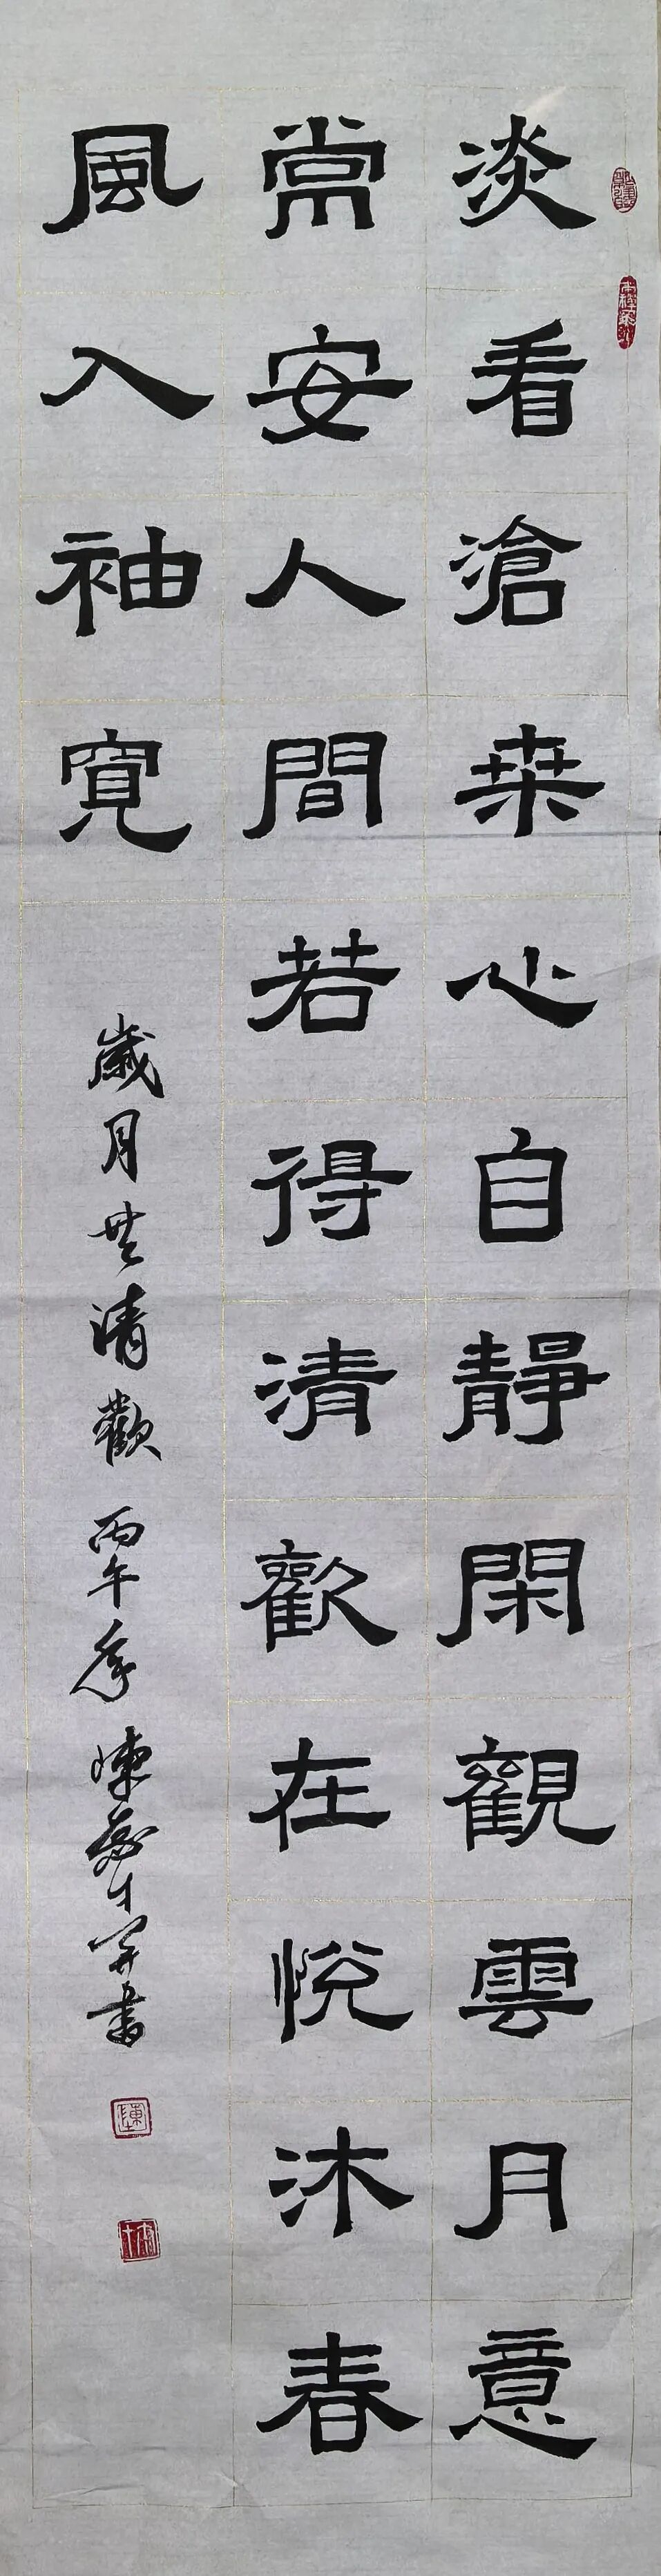 淡看滄桒心自靜閑觀雲月意
常安人間若得清歡在悦沐春
風入袖寬
歲月共清歡 丙午年 陳 書
陳